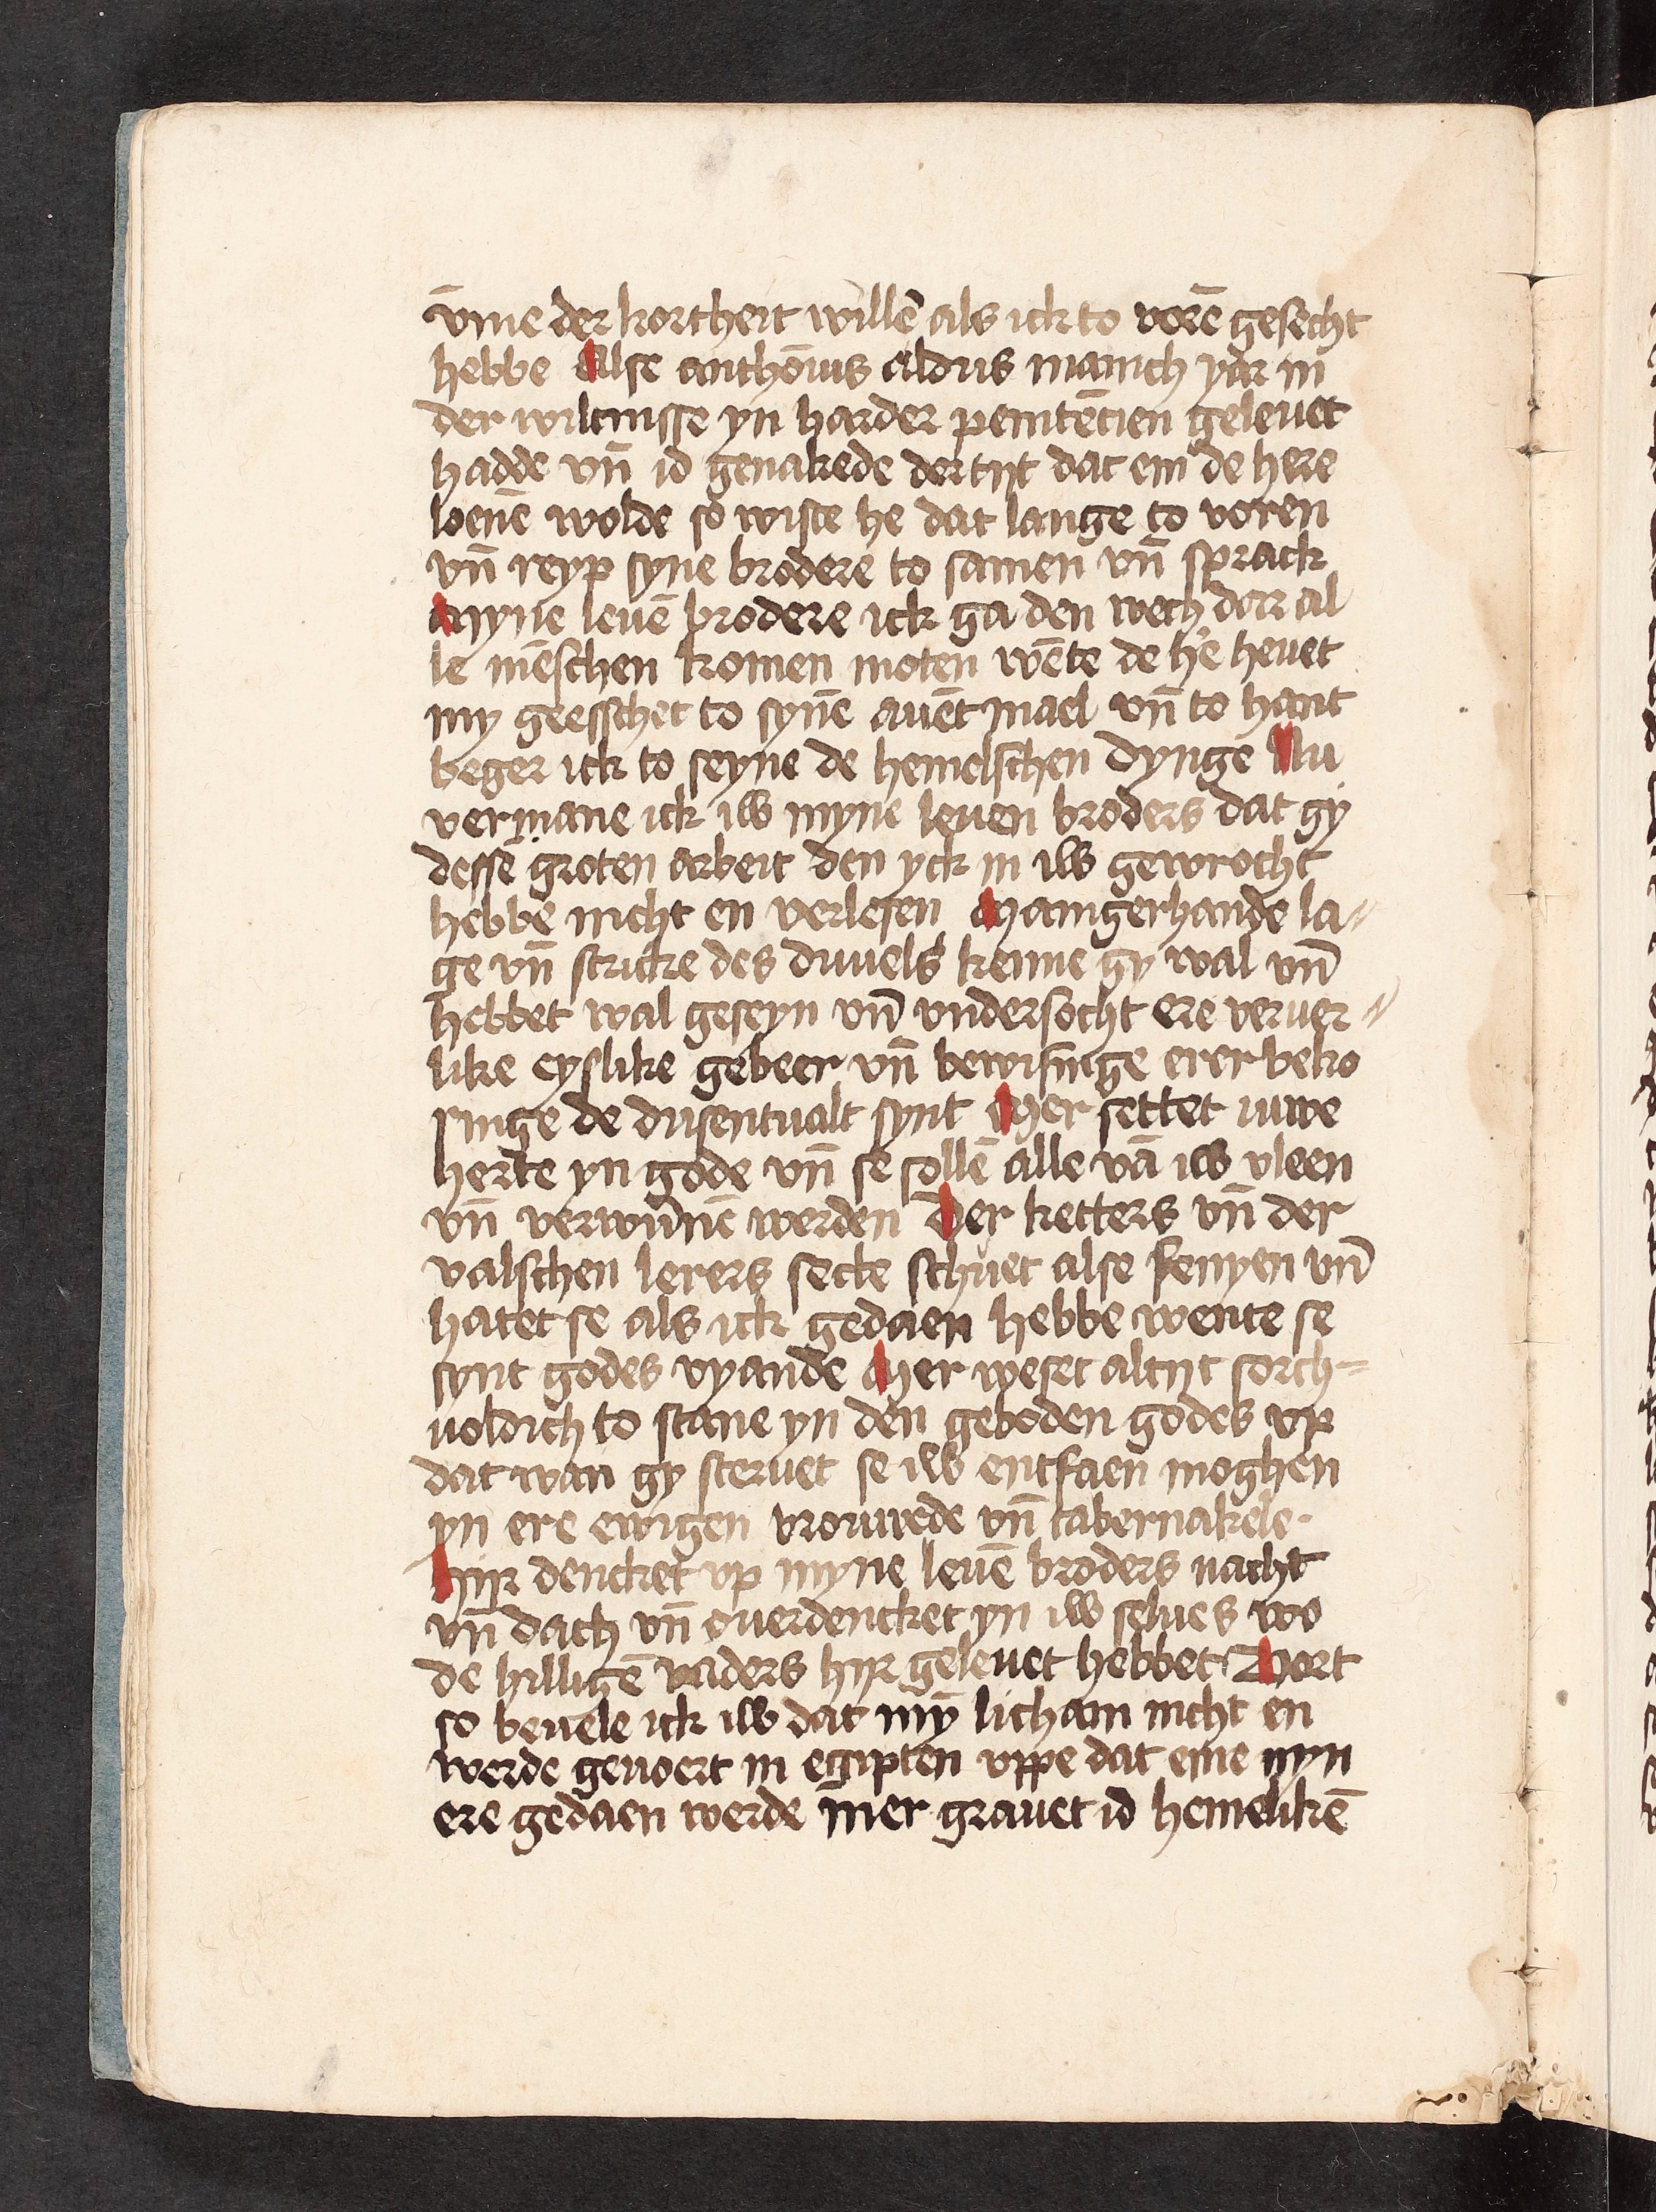 v̄me der kortheit willē als ick to vorē gesecht
hebbe Alse anthōius aldus mānich yar in
der wiltnisse yn harder penitēcien geleuet
hadde vn̄ id genakede der tijt dat em de here
loenē wolde so wiste he dat lange to voren
vn̄ reyp syne brodere to samen vn̄ sprack
Myne leuē brodere ick ga den wech dor al
le mēschen komen moten wēte de h'e heuet
my geesschet to synē auētmael vn̄ to hant
beger ick to seyne de hemelschen dynge Nu
vermane ick iw myne leuen broders dat gy
dessē groten arbeit den yck in iw gewrocht
hebbe nicht en verlesen Manigerhande la⸗
ge vn̄ stricke des duuels kenne gy wal vn̄
hebbet wal geseyn vn̄ vndersocht ere veruer⸗
like eyslike gebeer vn̄ bewisīge erer beko
ringe de dusentualt synt Mer settet iuwe
herte yn gode vn̄ se sollē alle vā iw vleen
vn̄ verwūnē werden Der ketters vn̄ der
valschen lerers secte schuet alse fenyen vn̄
hatet se als ick gedaen hebbe wente se
synt godes vyande Mer weset altijt sorch⸗
uoldich to stane yn den geboden godes vp
dat wan gy steruet se iw entfaen moghen
yn ere ewigen vrouwede vn̄ tabernakele·
hijr dencket vp myne leuē broders nacht
vn̄ dach vn̄ ouerdencket yn iw selues wo
de hilligē vaders hijr geleuet hebbet Vort
so beuele ick iw dat mȳ licham nicht en
werde geuoert in egipten vppe dat eme nyn
ere gedaen werde mer grauet id hemelikē